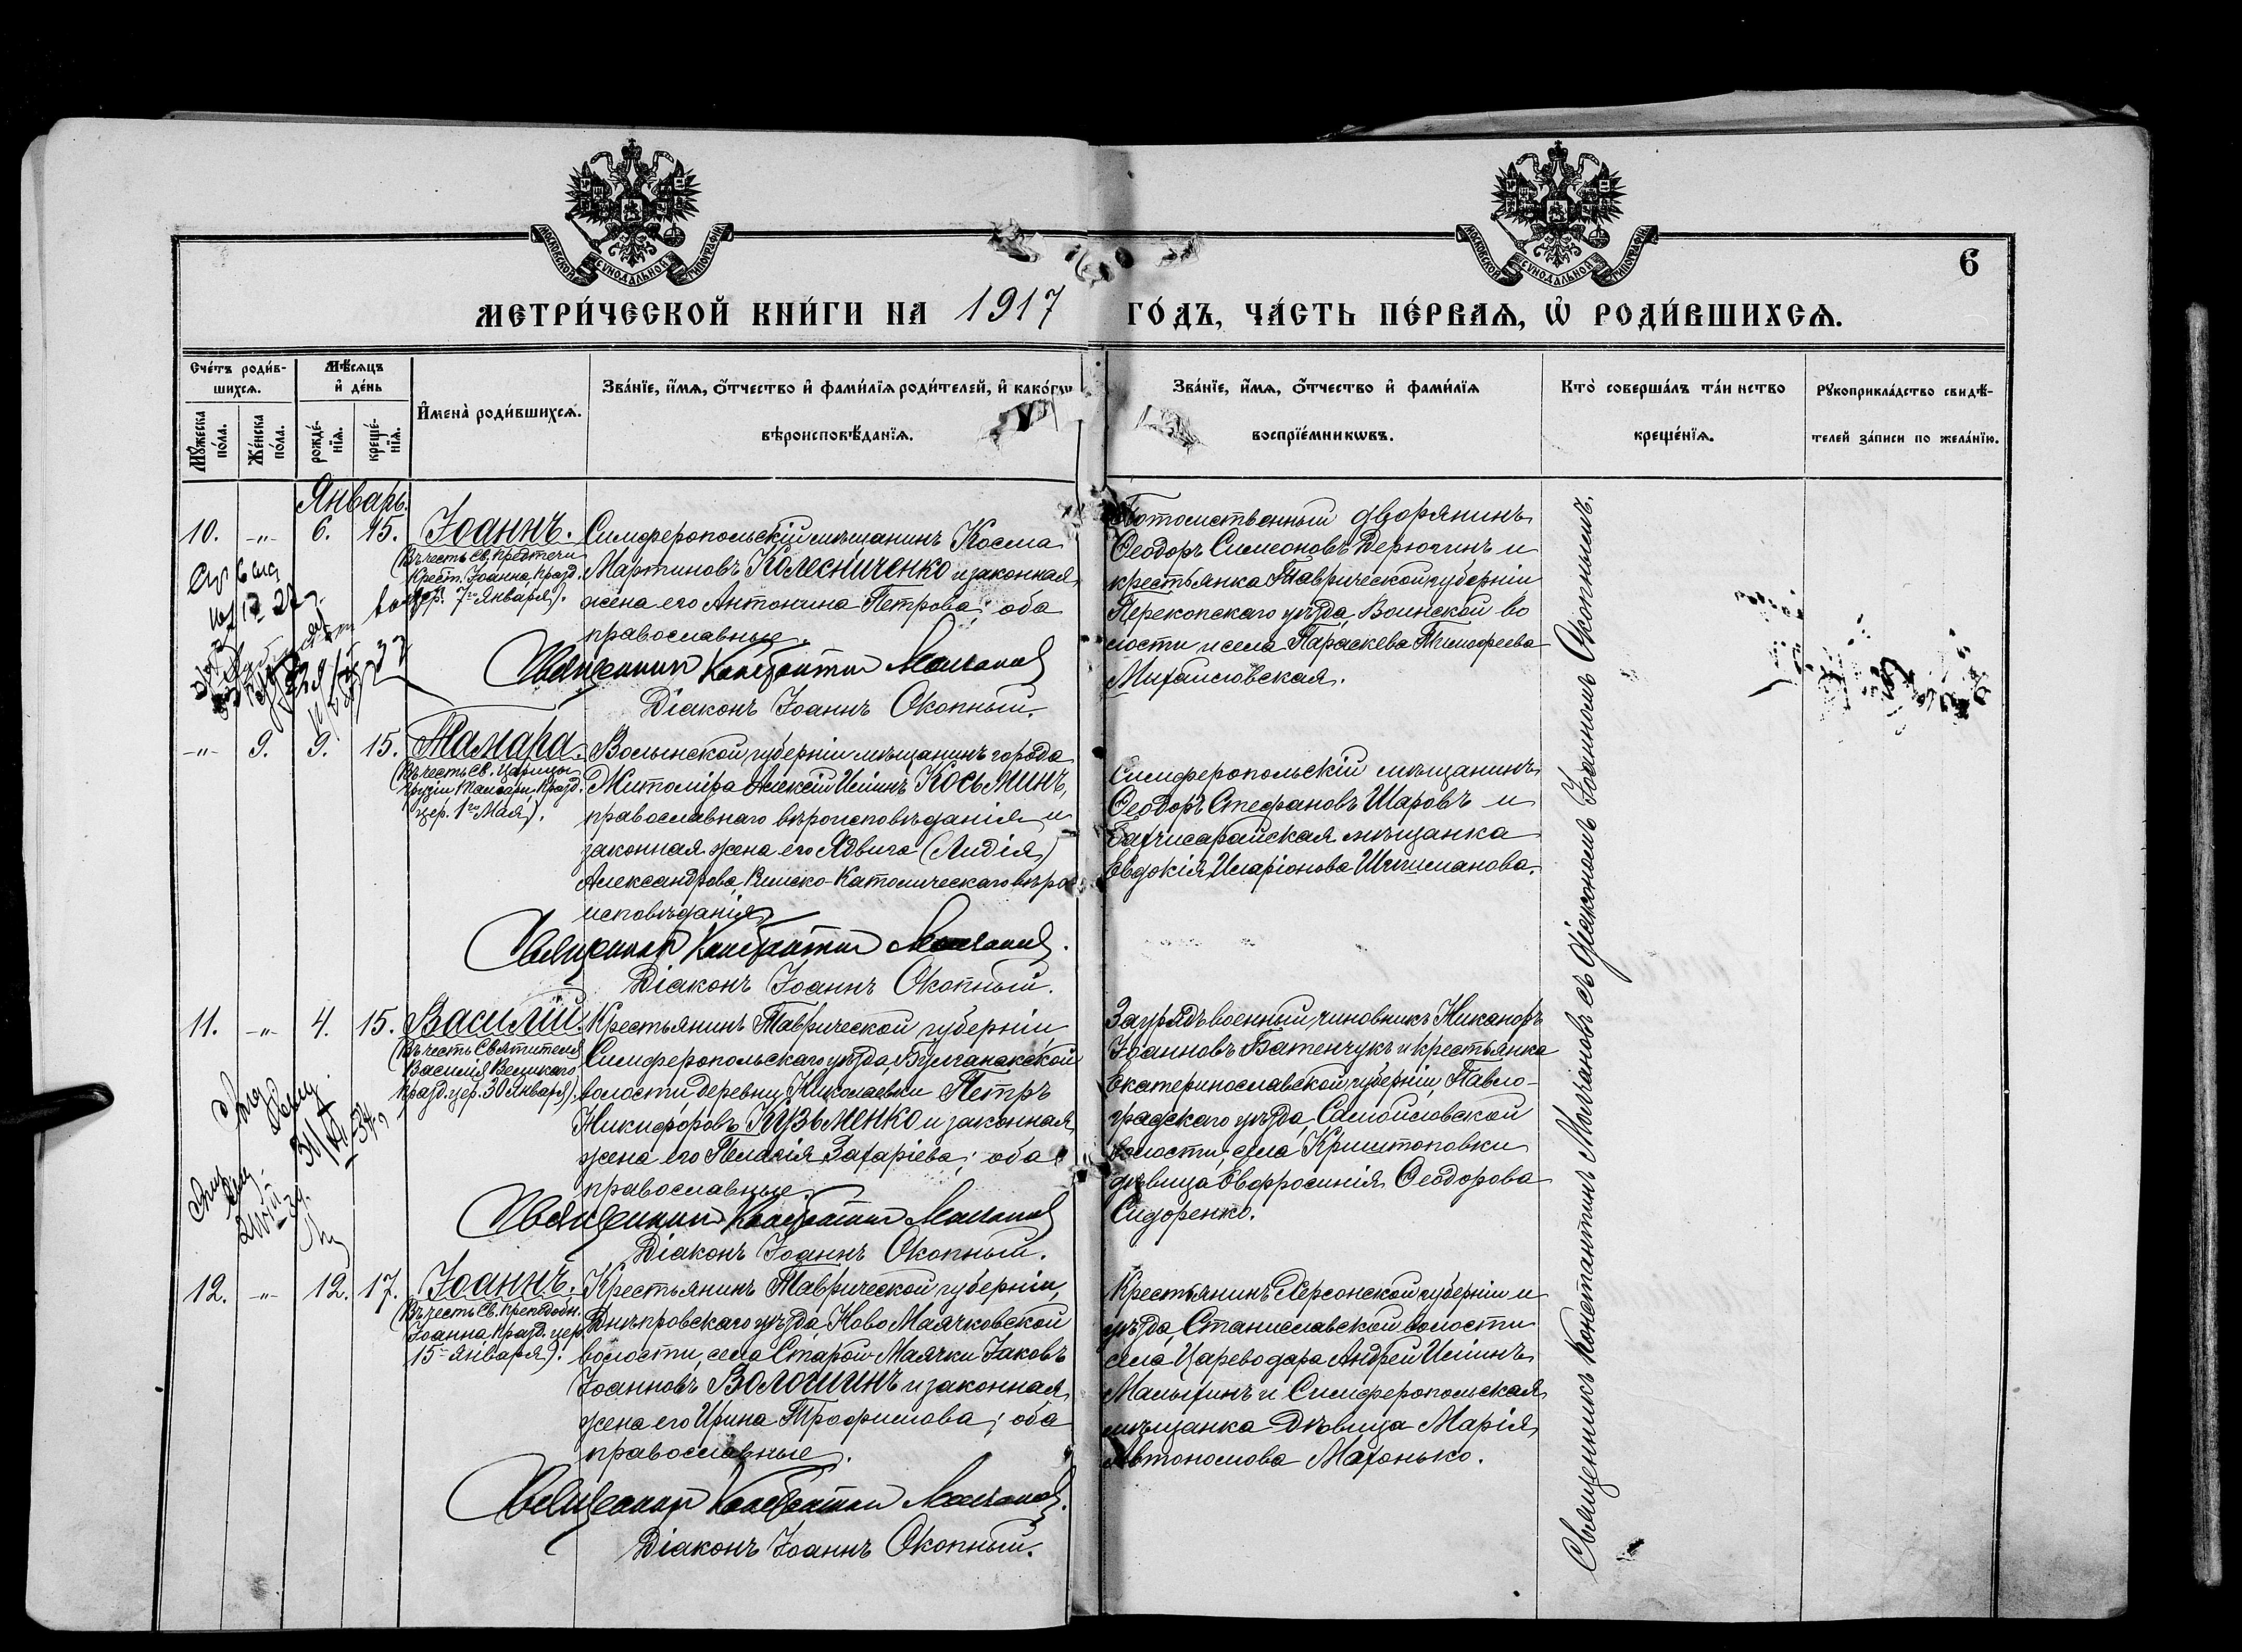 МОСКОВСКОЙ СѴНОДАЛЬНОЙ ТИПОГРАФІИ
МОСКОВСКОЙ СѴНОДАЛЬНОЙ ТИПОГРАФІИ
6
МЕТРИ́ЧЕСКОЙ КНИ́ГИ НА 1917 ГО́ДЪ, ЧА́СТЬ ПЕ́РВАѦ, Ѡ҆ РОДИ́ВШИХСѦ.
Сче́тъ роди́в-
шихсѧ.
Мѣ́сѧцъ
и҆ де́нь
Мꙋ́жеска
по́ла.
Же́нска
по́ла.
рожде́-
нїѧ.
креще́-
нїѧ.
И҆мена̀ роди́вшихсѧ.
Зва́нїе, и҆́мѧ, ѻ҆́тчество и҆ фами́лїѧ роди́телей, и҆ како́гѡ
вѣроисповѣ́данїѧ.
Зва́нїе, и҆́мѧ, ѻ҆́тчество и҆ фами́лїѧ
воспрїе́мникѡвъ.
Кто̀ соверша́лъ та́инство
креще́нїѧ.
Рꙋкоприкла́дство свидѣ́-
телей за́писи по жела́нїю.
Январь.
10. -"- 6. 15. Іоаннъ.
(Въ честь Св. Предтечи
Крест. Іоанна, празд.
цер. 7го Января).
Симферопольскій мѣщанинъ Косма
Мартиновъ Колесниченко и законная
жена его Антонина Петрова; оба
православные.
Священникъ Константин Молчанов
Діаконъ Іоаннъ Окопный.
Потомственный дворянинъ
Ѳеодоръ Симеоновъ Дерюгинъ и
крестьянка Таврической губерніи
Перекопскаго уѣзда, Воинской во
лости и села Параскева Тимофеева
Михайловская.
-"- 9. 9. 15. Тамара.
(Въ честь Св. Царицы
Грузіи Тамары, празд.
цер. 1го Мая).
Волынской губерніи мѣщанинъ города
Житоміра Алексій Иліинъ Косьминъ,
православнаго вѣроисповѣданія и
законная жена его Ядвига (Лидія)
Александрова, Римско-Католическаго вѣро
исповѣданія
Священник Константин Молчанов.
Діаконъ Іоаннъ Окопный.
Симферопольскій мѣщанинъ
Ѳеодоръ Стефановъ Шаровъ и
Бахчисарайская мѣщанка
Евдокія Иларіонова Шишманова.
11. -"- 4. 15. Василій.
(Въ честь Святителя
Василія Великаго
празд. цер. 30 января).
Крестьянинъ Таврической губерніи
Симферопольскаго уѣзда, Булганакской
волости деревни Николаевки Петръ
Никифоровъ Кузьменко и законная
жена его Пелагія Захаріева; оба
православные.
Священник Константин Молчанов
Діаконъ Іоаннъ Окопный.
Заурядъ военный чиновникъ Никаноръ
Іоанновъ Батенчукъ и крестьянка
Екатеринославской губерніи, Павло-
градскаго уѣзда, Самойловской
волости, села Криштоповки
дѣвица Евфросинія Ѳеодорова
Сидоренко.
12. -"- 12. 17. Іоаннъ.
(Въ честь Св. преподобн.
Іоанна, празд. цер.
15го января).
Крестьянинъ Таврической губерніи,
Днѣпровскаго уѣзда, Ново Маячковской
волости, села Старой-Маячки Іаковъ
Іоанновъ Волошинъ и законная
жена его Ирина Трофимова; оба
православные.
Священник Константин Молчанов.
Діаконъ Іоаннъ Окопный.
Крестьянинъ Херсонской губерніи и
уѣзда, Станиславской волости
села Цареводара Андрей Иліинъ
Малыхинъ и Симферопольская
мѣщанка дѣвица Марія
Автономова Махонько.
Священникъ Константинъ Молчановъ съ діакономъ Іоанномъ Окопнымъ.